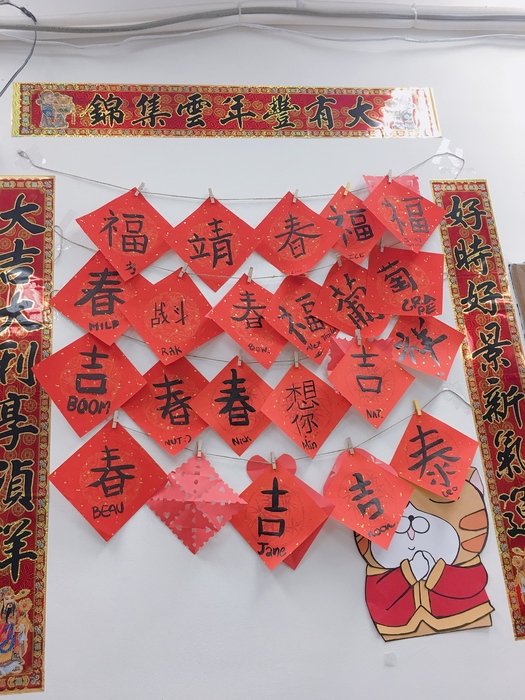 大有豐年雲集錦
大吉大利享禎祥
好時好景新氣運
福
靖
春
福
福
春
战斗
RAK
春
BOW
福
葡
萄
祥
吉
BOOM
春
春
Nich
想
你
Min
吉
NAT
春
BEAU
吉
Jane
吉
泰
Leo